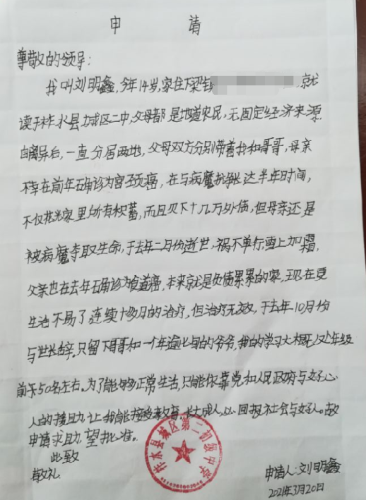 申 请
尊敬的领导:
我叫刘明鑫,今年14岁,家住下梁镇 就
读于柞水县城区二中父母都是地道农民,无固定经济来源
自离异后,一直分居两地,父母双方分别带着我和哥哥,母亲
不幸在前年五月确诊为宫颈癌,在与病魔抗战达半年时间,
不仅花光家里所有积蓄,而且欠下十几万外债,但母亲还是
被病魔夺取生命,于去年二月份逝世,祸不单行雪上加霜,
父亲也在去年五月确诊为食道癌,本来就是负债累累的家,现在更
生活不易了连续十多月的治疗,但治疗无效,于去年10月份
与世长辞,只留下哥哥和一个年逾七旬的爷爷,我的学习大概于年级
前50名左右。为了能够正常生活,只能依靠党和人民政府与好心
人的援助,让我能接受教育,长大成人,以回报社会与好心人。故
申请求助,望批准。
此致
敬礼
柞水县城区第二初级中学
申请人:刘明鑫
2021年3月20日